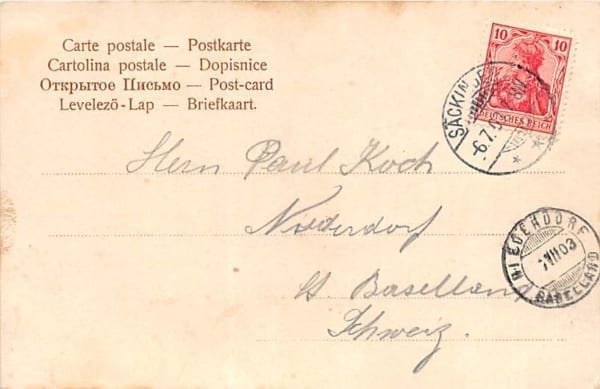 Carte postale — Postkarte
Cartolina postale — Dopisnice
Открытое Письмо — Post-card
Levelező-Lap — Briefkaart.
10 10
DEUTSCHES REICH
SÄCKINGEN
6.7.
Herrn Paul Koch
Niederdorf
Ct. Baselland
Schweiz.
NIEDERDORF
VII 03
BASELLAND